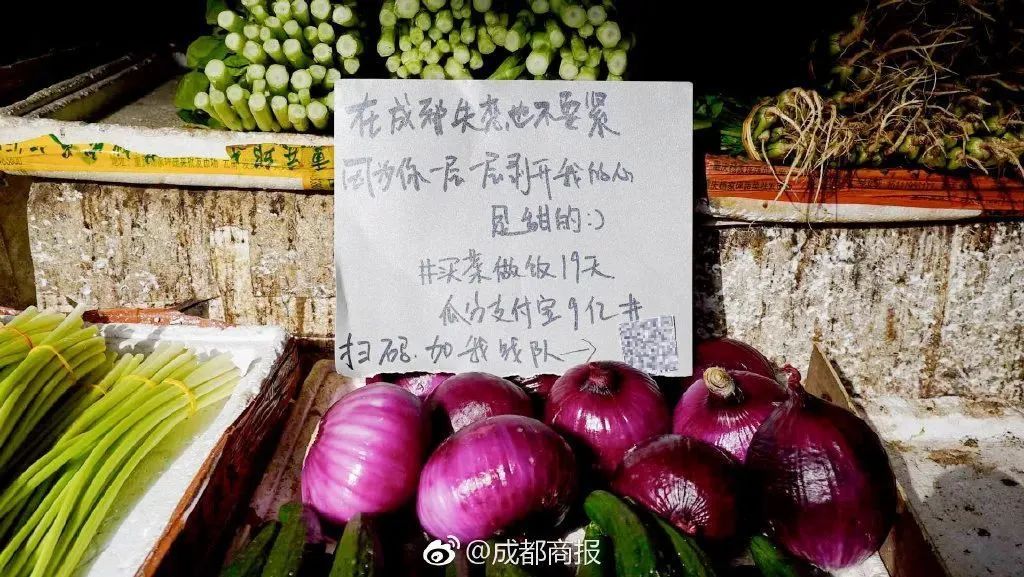 在成都失恋也不要紧
因为你一层一层剥开我的心
是甜的:)
#买菜做饭19天
瓜分支付宝9亿#
扫码.加我战队→
@成都商报